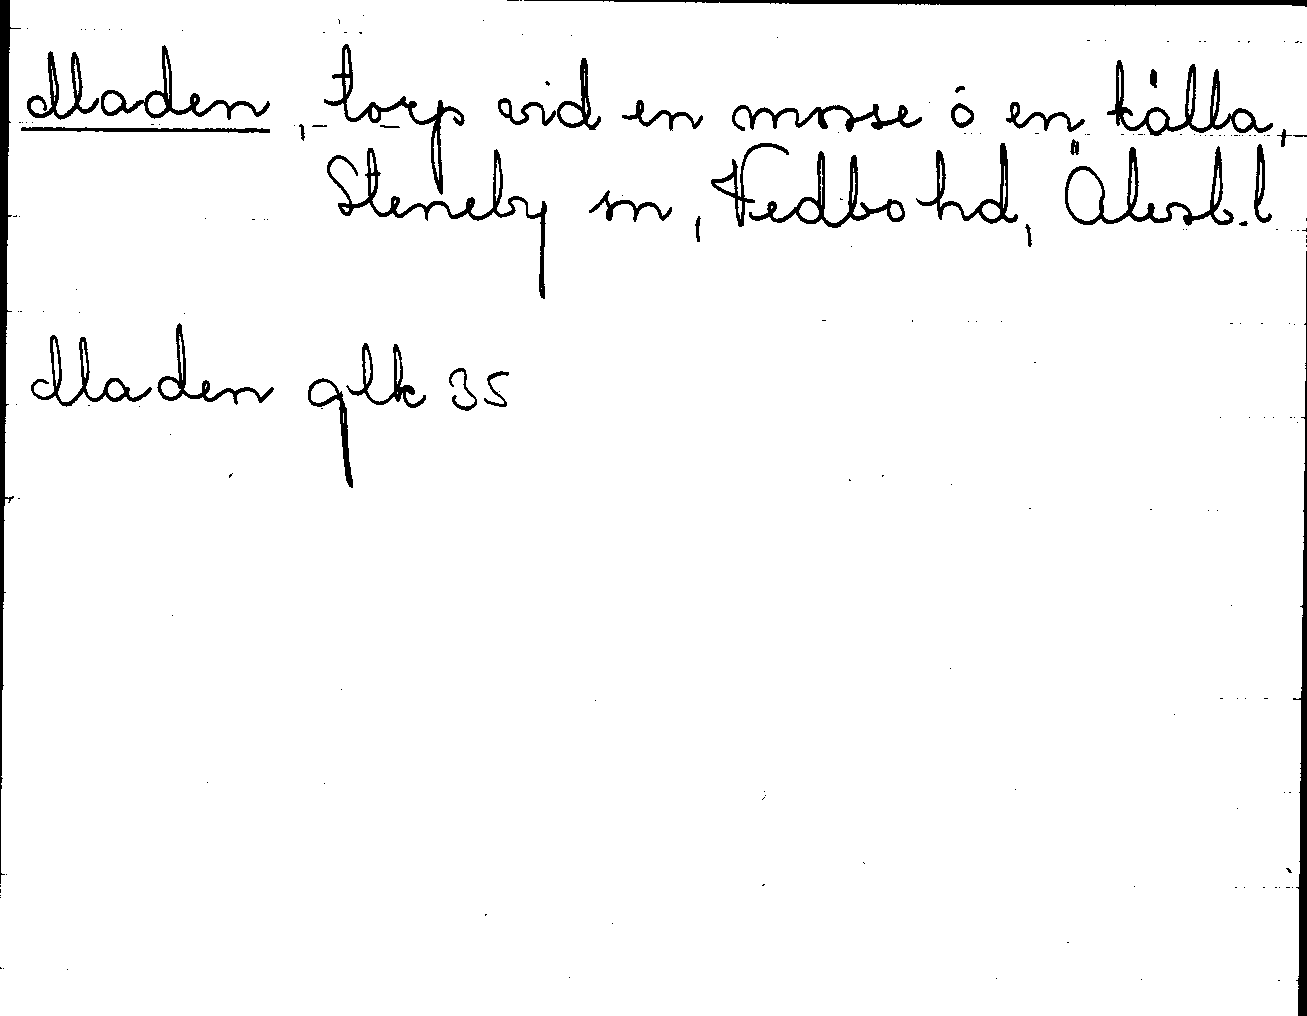 Maden, torp vid en mosse ó en källa,
Steneby sn, Vedbo hd, Älvsb. l
Maden glk 35